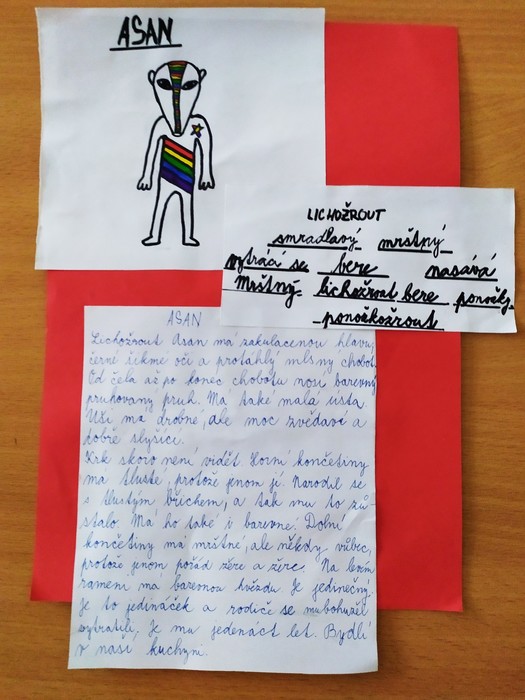 ASAN
LICHOŽROUT
smradlavý mrštný
vytrácí se bere nasává
Mrštný lichožrout bere ponožky.
ponožkožrout
ASAN
Lichožrout Asan má zakulacenou hlavu,
černé šikmé oči a protáhlý mlsný chobot.
Od čela až po konec chobotu nosí barevný
pruhovaný pruh. Má také malá ústa.
Uši má drobné, ale moc zvědavé a
dobře slyšící.
Krk skoro není vidět. Horní končetiny
má tlusté, protože jenom jí. Narodil se
s tlustým břichem, a tak mu to zů-
stalo. Má ho také i barevné. Dolní
končetiny má mrštné, ale někdy vůbec,
protože jenom pořád žere a žere. Na levém
rameni má barevnou hvězdu. Je jedinečný.
Je to jedináček a rodiče se mu bohužel
vytratili. Je mu jedenáct let. Bydlí
v naší kuchyni.